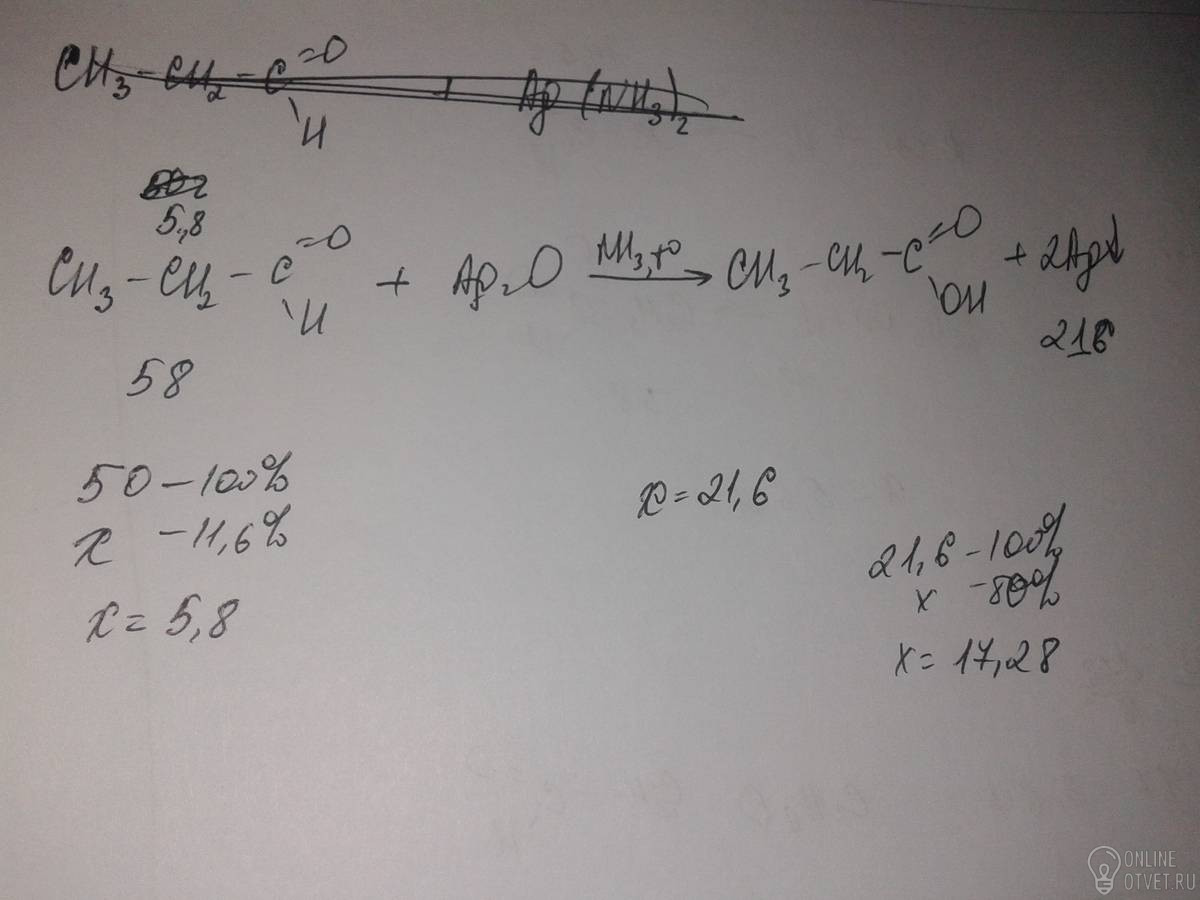 CH₃ – CH₂ – C =O \H + Ag (NH₃)₂
5,8
CH₃ – CH₂ – C =O \H + Ag₂O NH₃, t° → CH₃ – CH₂ – C =O \OH + 2Ag↓
58
216
50 – 100%
x – 11,6%
x = 5,8
x = 21,6
21,6 – 100%
x – 80%
x = 17,28
ONLINE
OTVET.RU